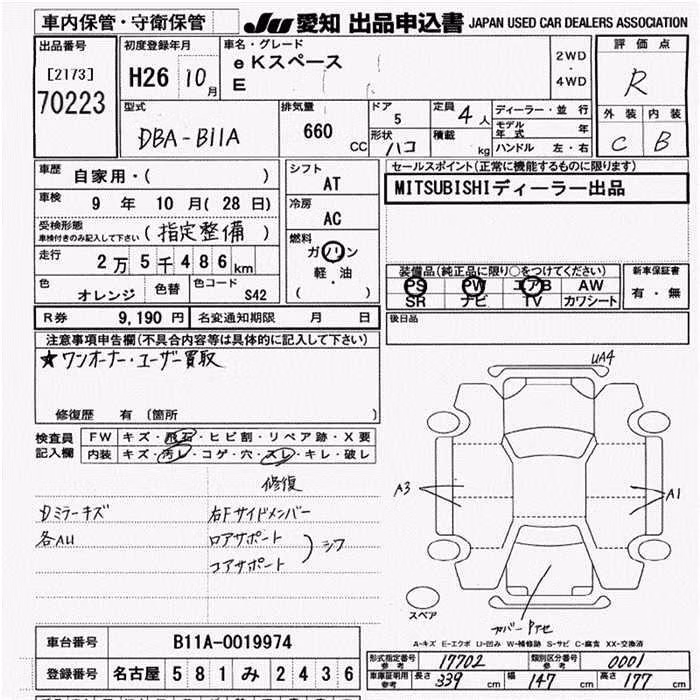 車内保管・守衛保管 JU 愛知 出品申込書 JAPAN USED CAR DEALERS ASSOCIATION
出品番号 初度登録年月 車名・グレード 評価点
[2173] H26 10月 eKスペース 2WD・4WD R
70223 E
型式 排気量 ドア 定員 ディーラー・並行 外装 内装
DBA-B11A 660 CC 5 4人 モデル年式 年 C B
形状 ハコ 積載 kg ハンドル 左・右
車歴 自家用・( ) シフト AT セールスポイント(正常に機能するものに限ります)
車検 9年10月(28日) 冷房 AC MITSUBISHIディーラー出品
受検形態 車検付きのみ記入して下さい (指定整備) 燃料 ガソリン
走行 2万5千486km 軽・油 ( )
装備品(純正品に限り○をつけてください) 新車保証書
色 オレンジ 色替 色コード S42 PS PW エアB AW 有・無
SR ナビ TV カワシート
R券 9,190円 名変通知期限 月 日 後日品
注意事項申告欄(不具合内容等は具体的に記入して下さい)
★ワンオーナー・ユーザー買取
修復歴 有 (箇所 )
検査員記入欄 FW キズ・飛石・ヒビ割・リペア跡・X要
内装 キズ・汚レ・コゲ・穴・スレ・キレ・破レ
修復
Dミラーキズ 右Fサイドメンバー
各AU ロアサポート
コアサポート
シワ
UA4
A3 A1
スペア カバーPアセ
A-キズ E-エクボ U-凹み W-補修跡 S-サビ C-腐食 XX-交換済
車台番号 B11A-0019974
登録番号 名古屋 581 み 2436
形式指定番号 参考 17702 類別区分番号 参考 0001
車庫証明用 参考 長さ 339cm 幅 147cm 高さ 177cm